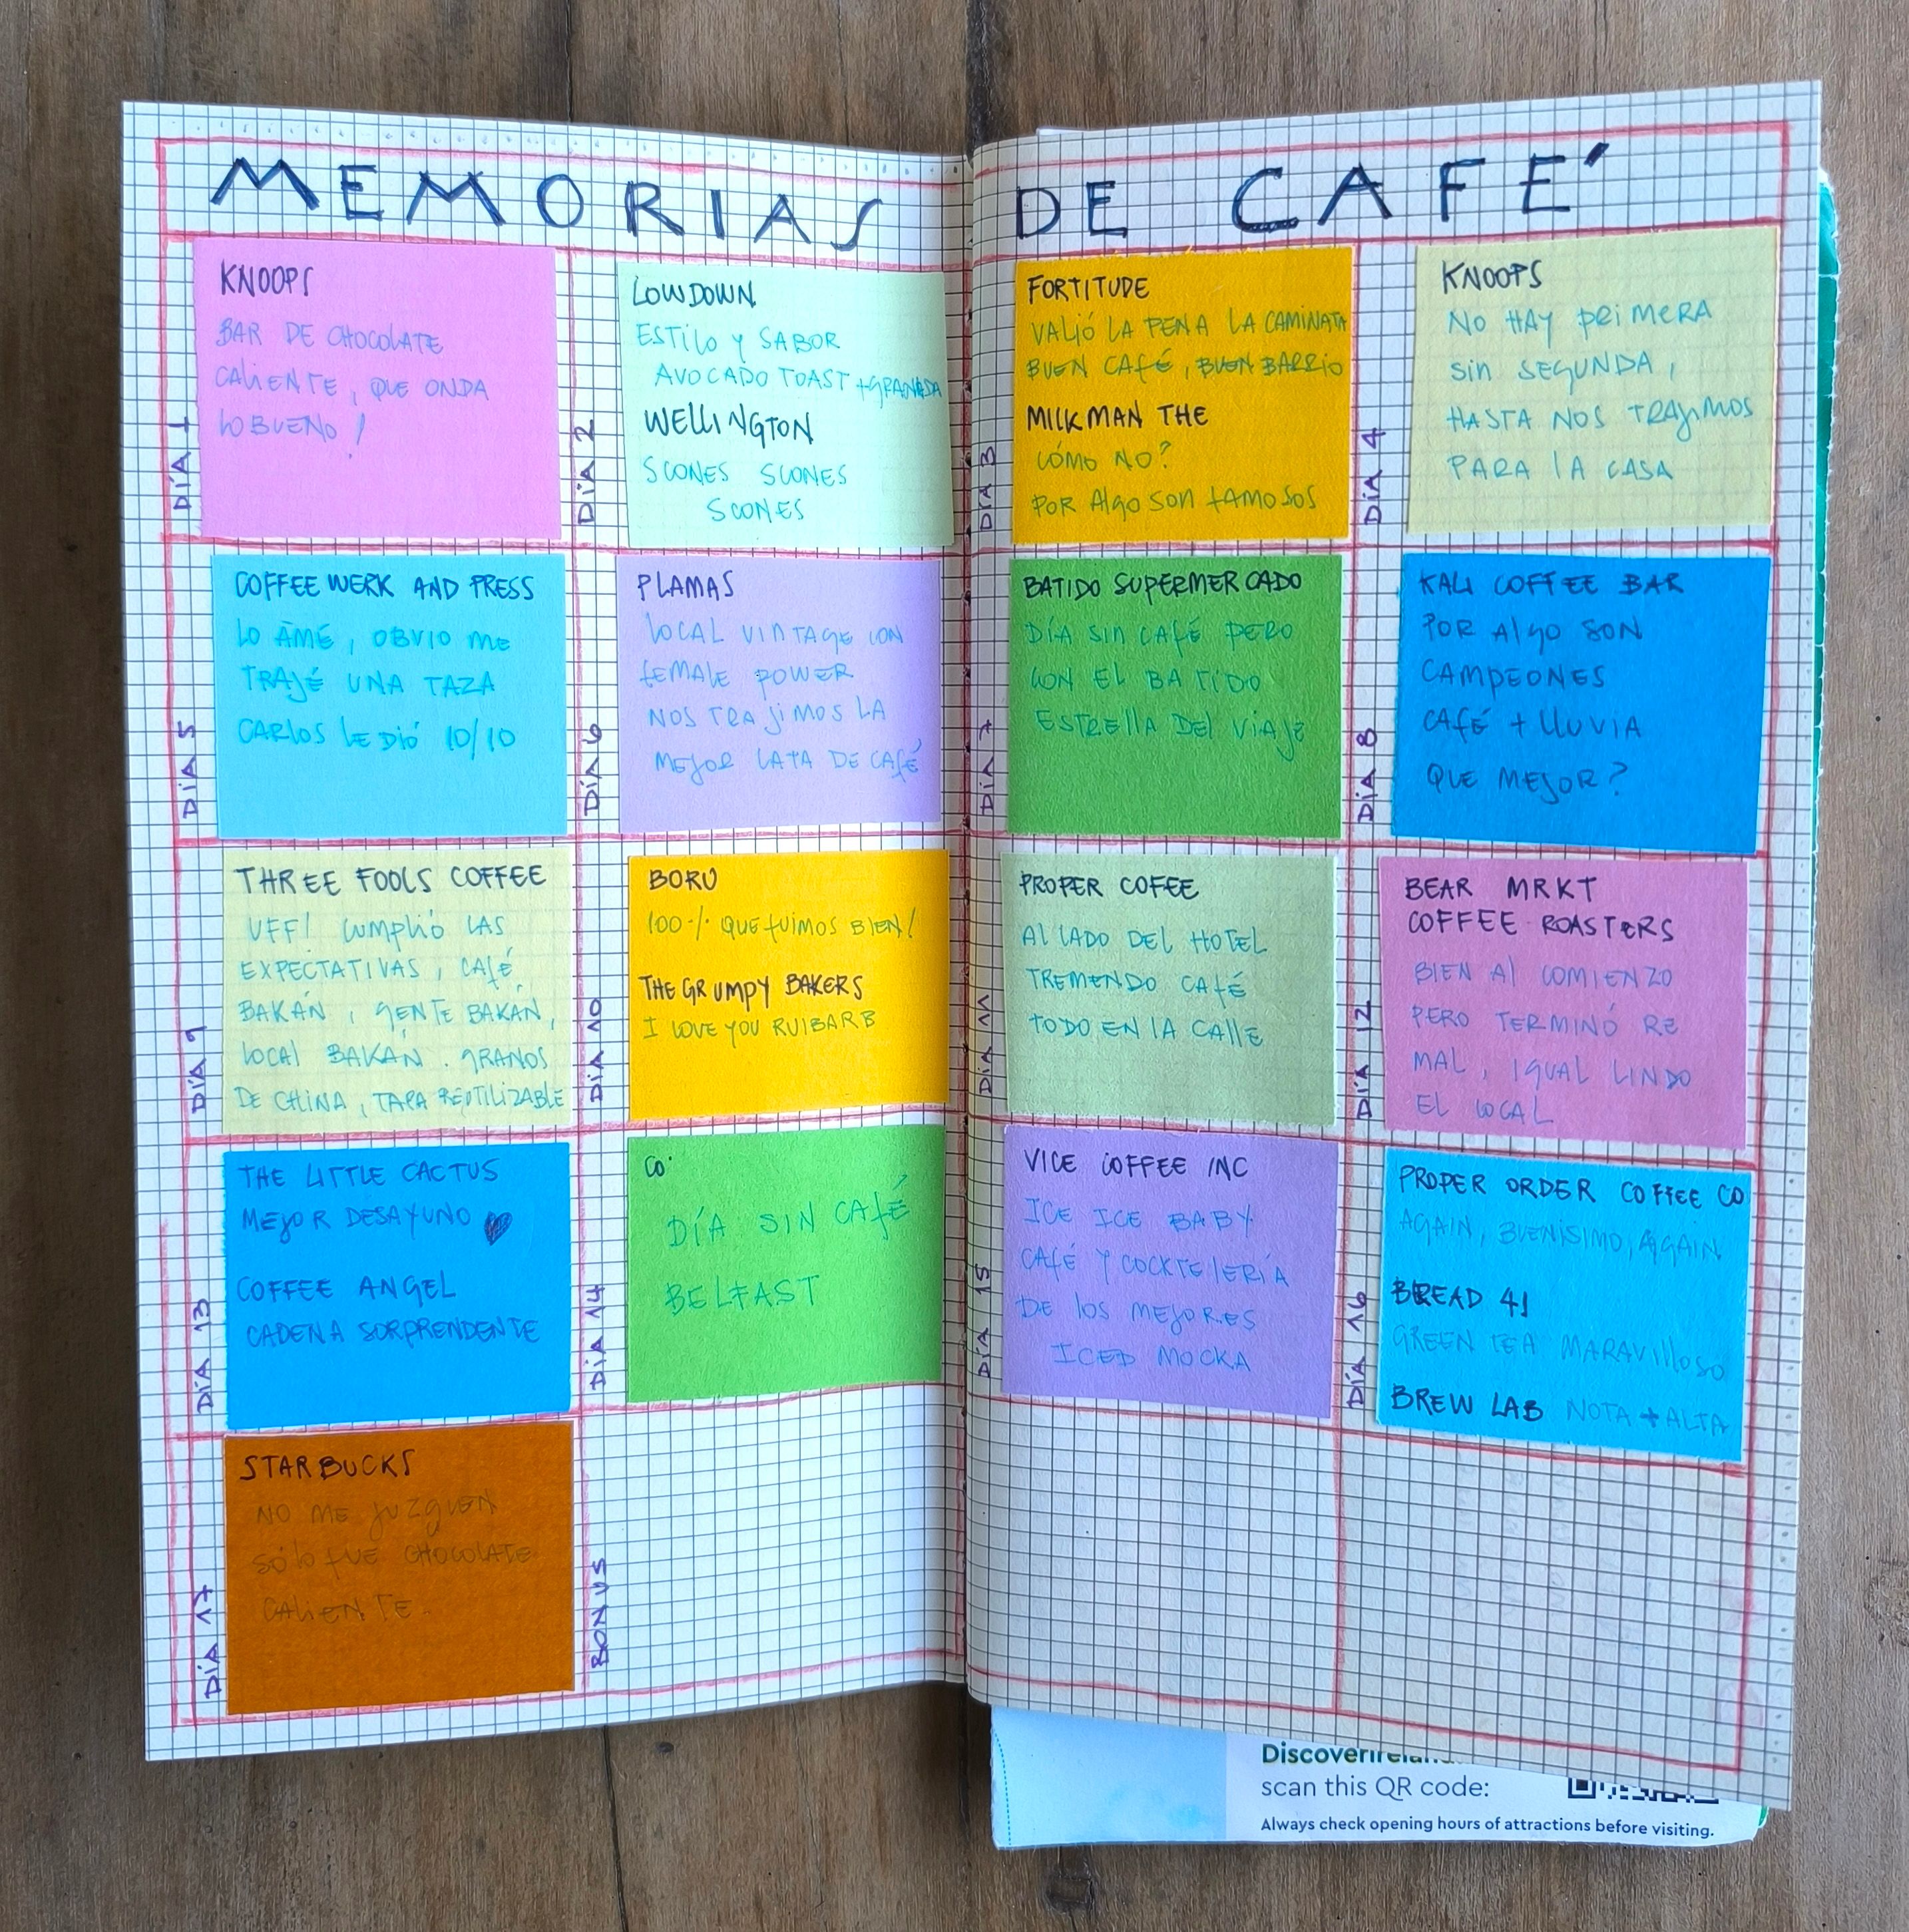 MEMORIAS DE CAFÉ
DÍA 1
KNOOPS
BAR DE CHOCOLATE
CALIENTE, QUE ONDA
LO BUENO!
DÍA 2
LOWDOWN
ESTILO Y SABOR
AVOCADO TOAST + GRANADA
WELLINGTON
SCONES SCONES
SCONES
DÍA 3
FORTITUDE
VALIÓ LA PENA LA CAMINATA
BUEN CAFÉ, BUEN BARRIO
MILKMAN THE
CÓMO NO?
POR ALGO SON FAMOSOS
DÍA 4
KNOOPS
NO HAY PRIMERA
SIN SEGUNDA,
HASTA NOS TRAJIMOS
PARA LA CASA
DÍA 5
COFFEE WERK AND PRESS
LO AMÉ, OBVIO ME
TRAJÉ UNA TAZA
CARLOS LE DIÓ 10/10
DÍA 6
PLAMAS
LOCAL VINTAGE CON
FEMALE POWER
NOS TRAJIMOS LA
MEJOR LATA DE CAFÉ
DÍA 7
BATIDO SUPERMERCADO
DÍA SIN CAFÉ PERO
CON EL BATIDO
ESTRELLA DEL VIAJE
DÍA 8
KALI COFFEE BAR
POR ALGO SON
CAMPEONES
CAFÉ + LLUVIA
QUE MEJOR?
DÍA 9
THREE FOOLS COFFEE
UFF! CUMPLIÓ LAS
EXPECTATIVAS, CAFÉ
BAKÁN, GENTE BAKÁN,
LOCAL BAKÁN. GRANOS
DE CHINA, TAPA REUTILIZABLE
DÍA 10
BORU
100% QUE FUIMOS BIEN!
THE GRUMPY BAKERS
I LOVE YOU RUIBARB
DÍA 11
PROPER COFEE
AL LADO DEL HOTEL
TREMENDO CAFÉ
TODO EN LA CALLE
DÍA 12
BEAR MRKT
COFFEE ROASTERS
BIEN AL COMIENZO
PERO TERMINÓ RE
MAL, IGUAL LINDO
EL LOCAL
DÍA 13
THE LITTLE CACTUS
MEJOR DESAYUNO
COFFEE ANGEL
CADENA SORPRENDENTE
DÍA 14
CO
DÍA SIN CAFÉ
BELFAST
DÍA 15
VICE COFFEE INC
ICE ICE BABY
CAFÉ Y COCKTELERÍA
DE LOS MEJORES
ICED MOCKA
DÍA 16
PROPER ORDER COFFEE CO
AGAIN, BUENÍSIMO, AGAIN
BREAD 41
GREEN TEA MARAVILLOSO
BREW LAB NOTA + ALTA
DÍA 17
STARBUCKS
NO ME JUZGUEN
SÓLO FUE CHOCOLATE
CALIENTE.
BONUS
scan this QR code:
Always check opening hours of attractions before visiting.